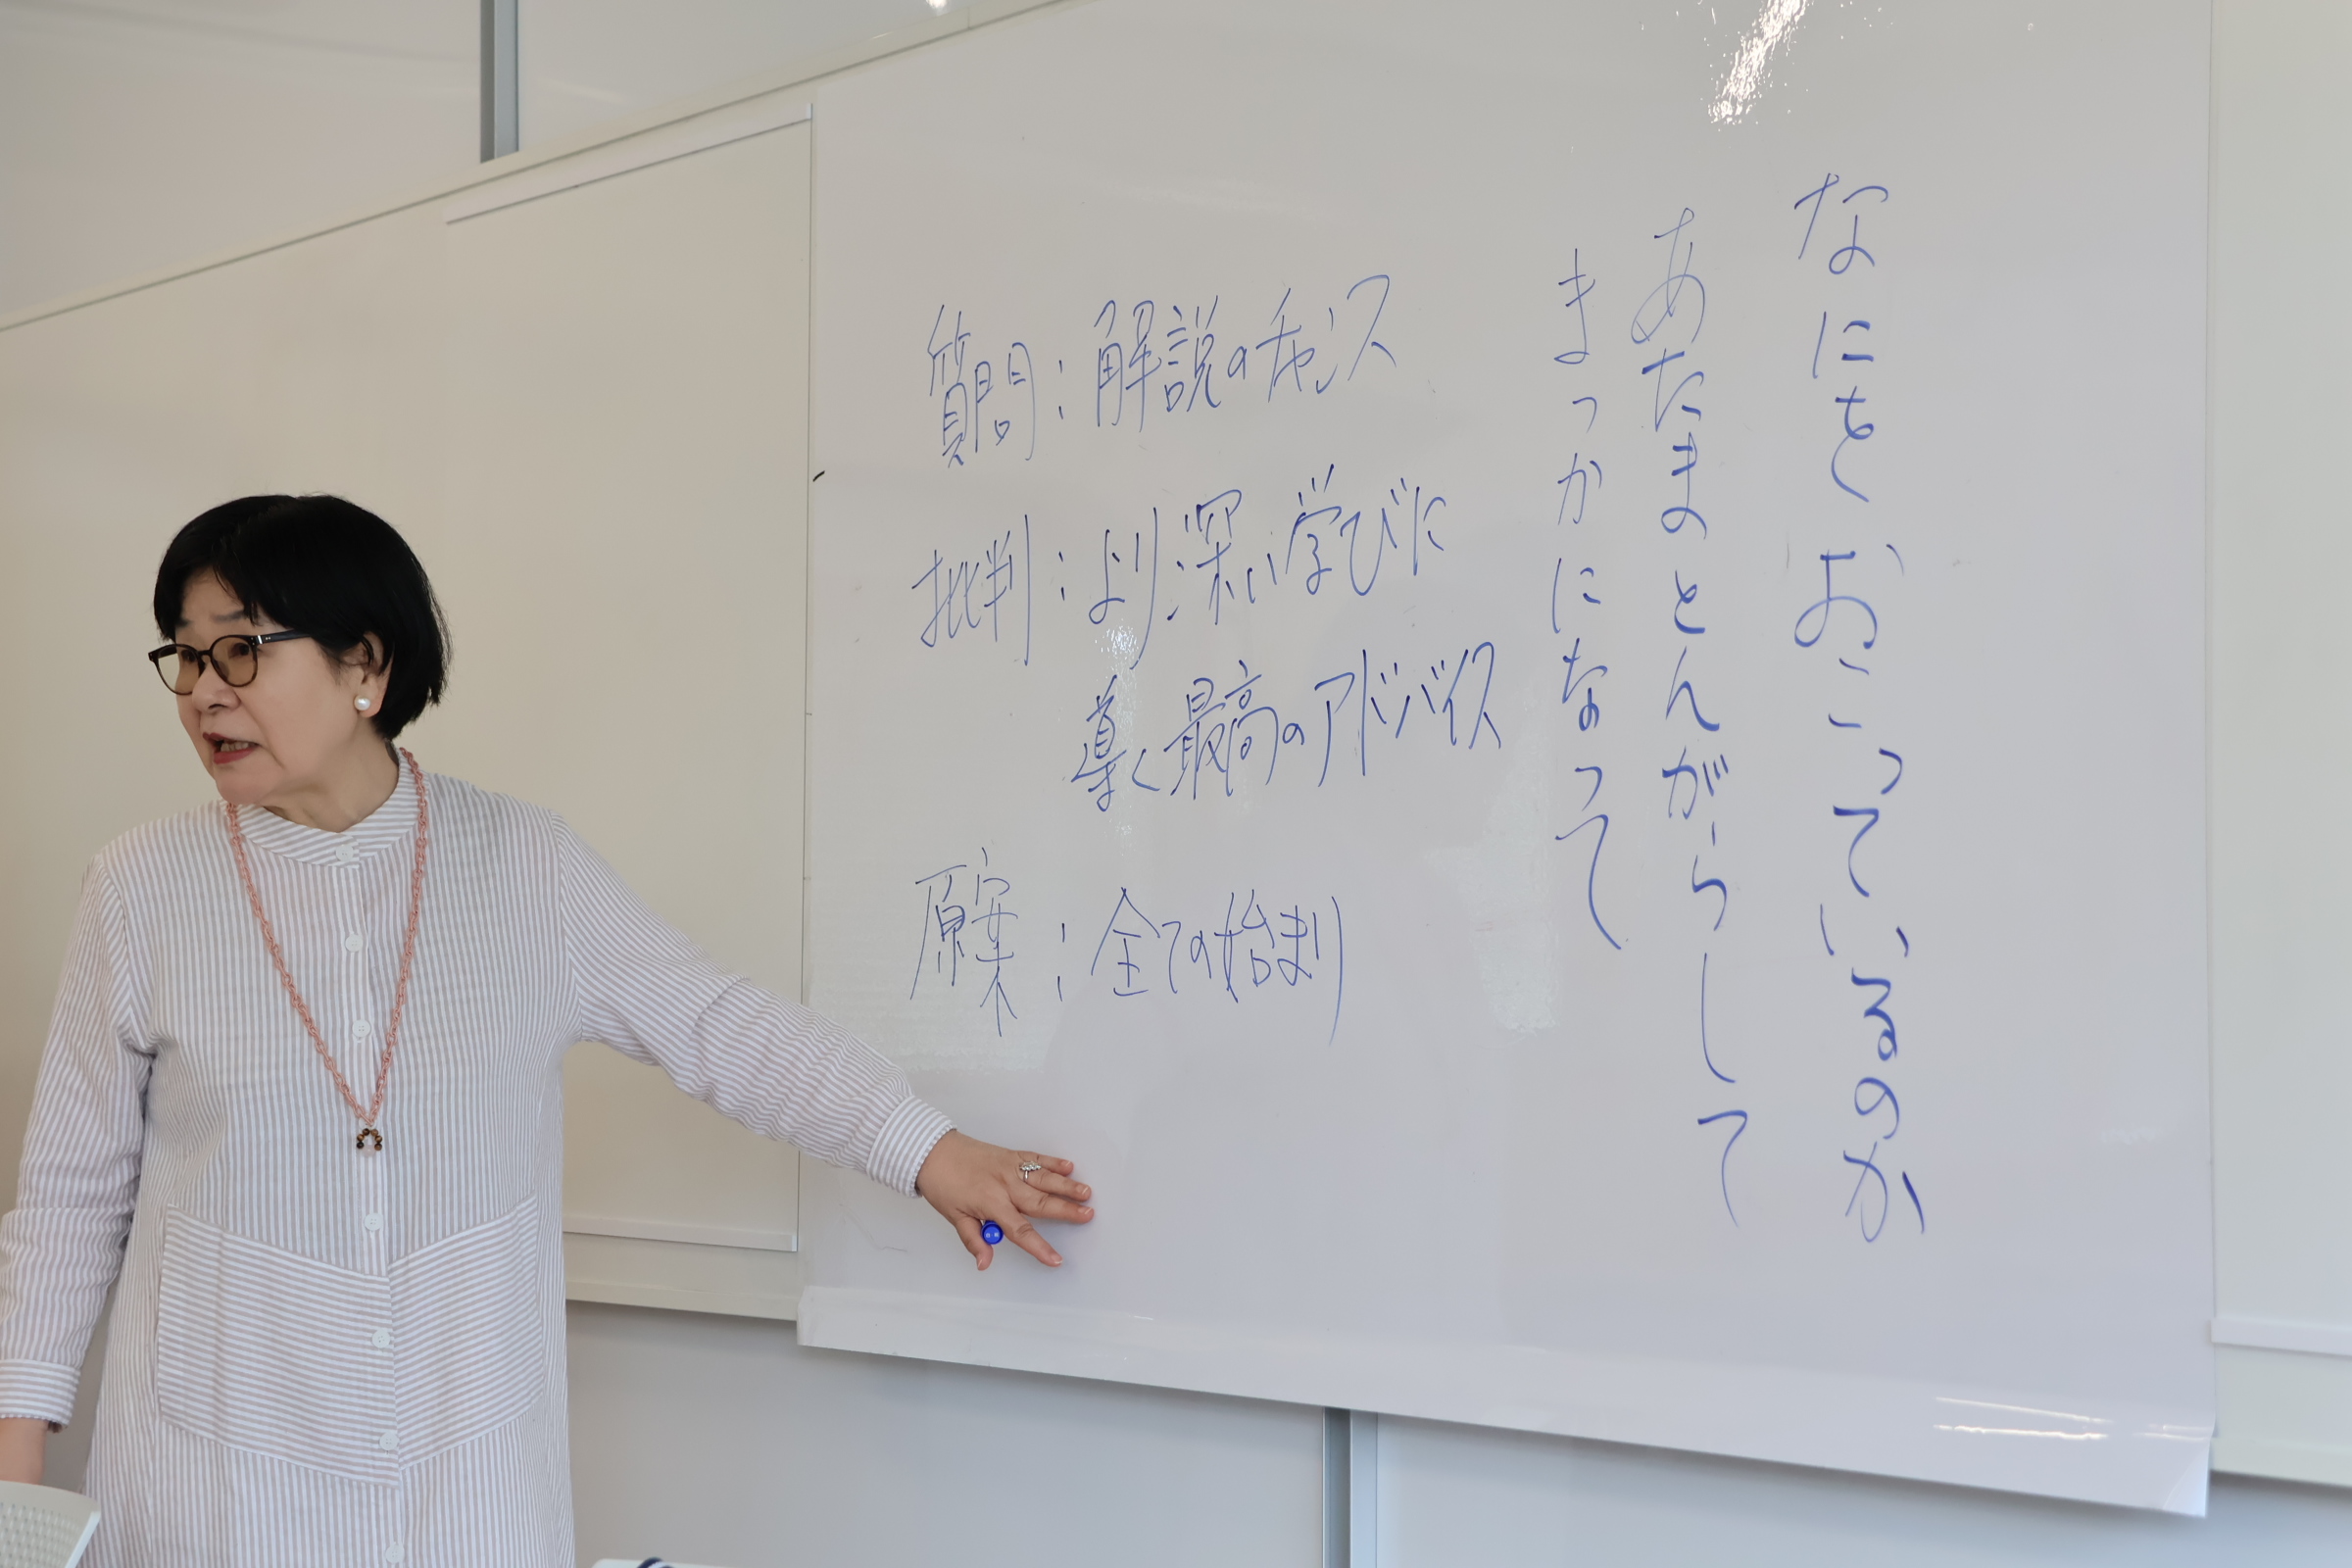 なにをおこっているのか
あたまとんがらして
まっかになって
質問：解説のチャンス
批判：より深い学びに
導く最高のアドバイス
原案：全ての始まり